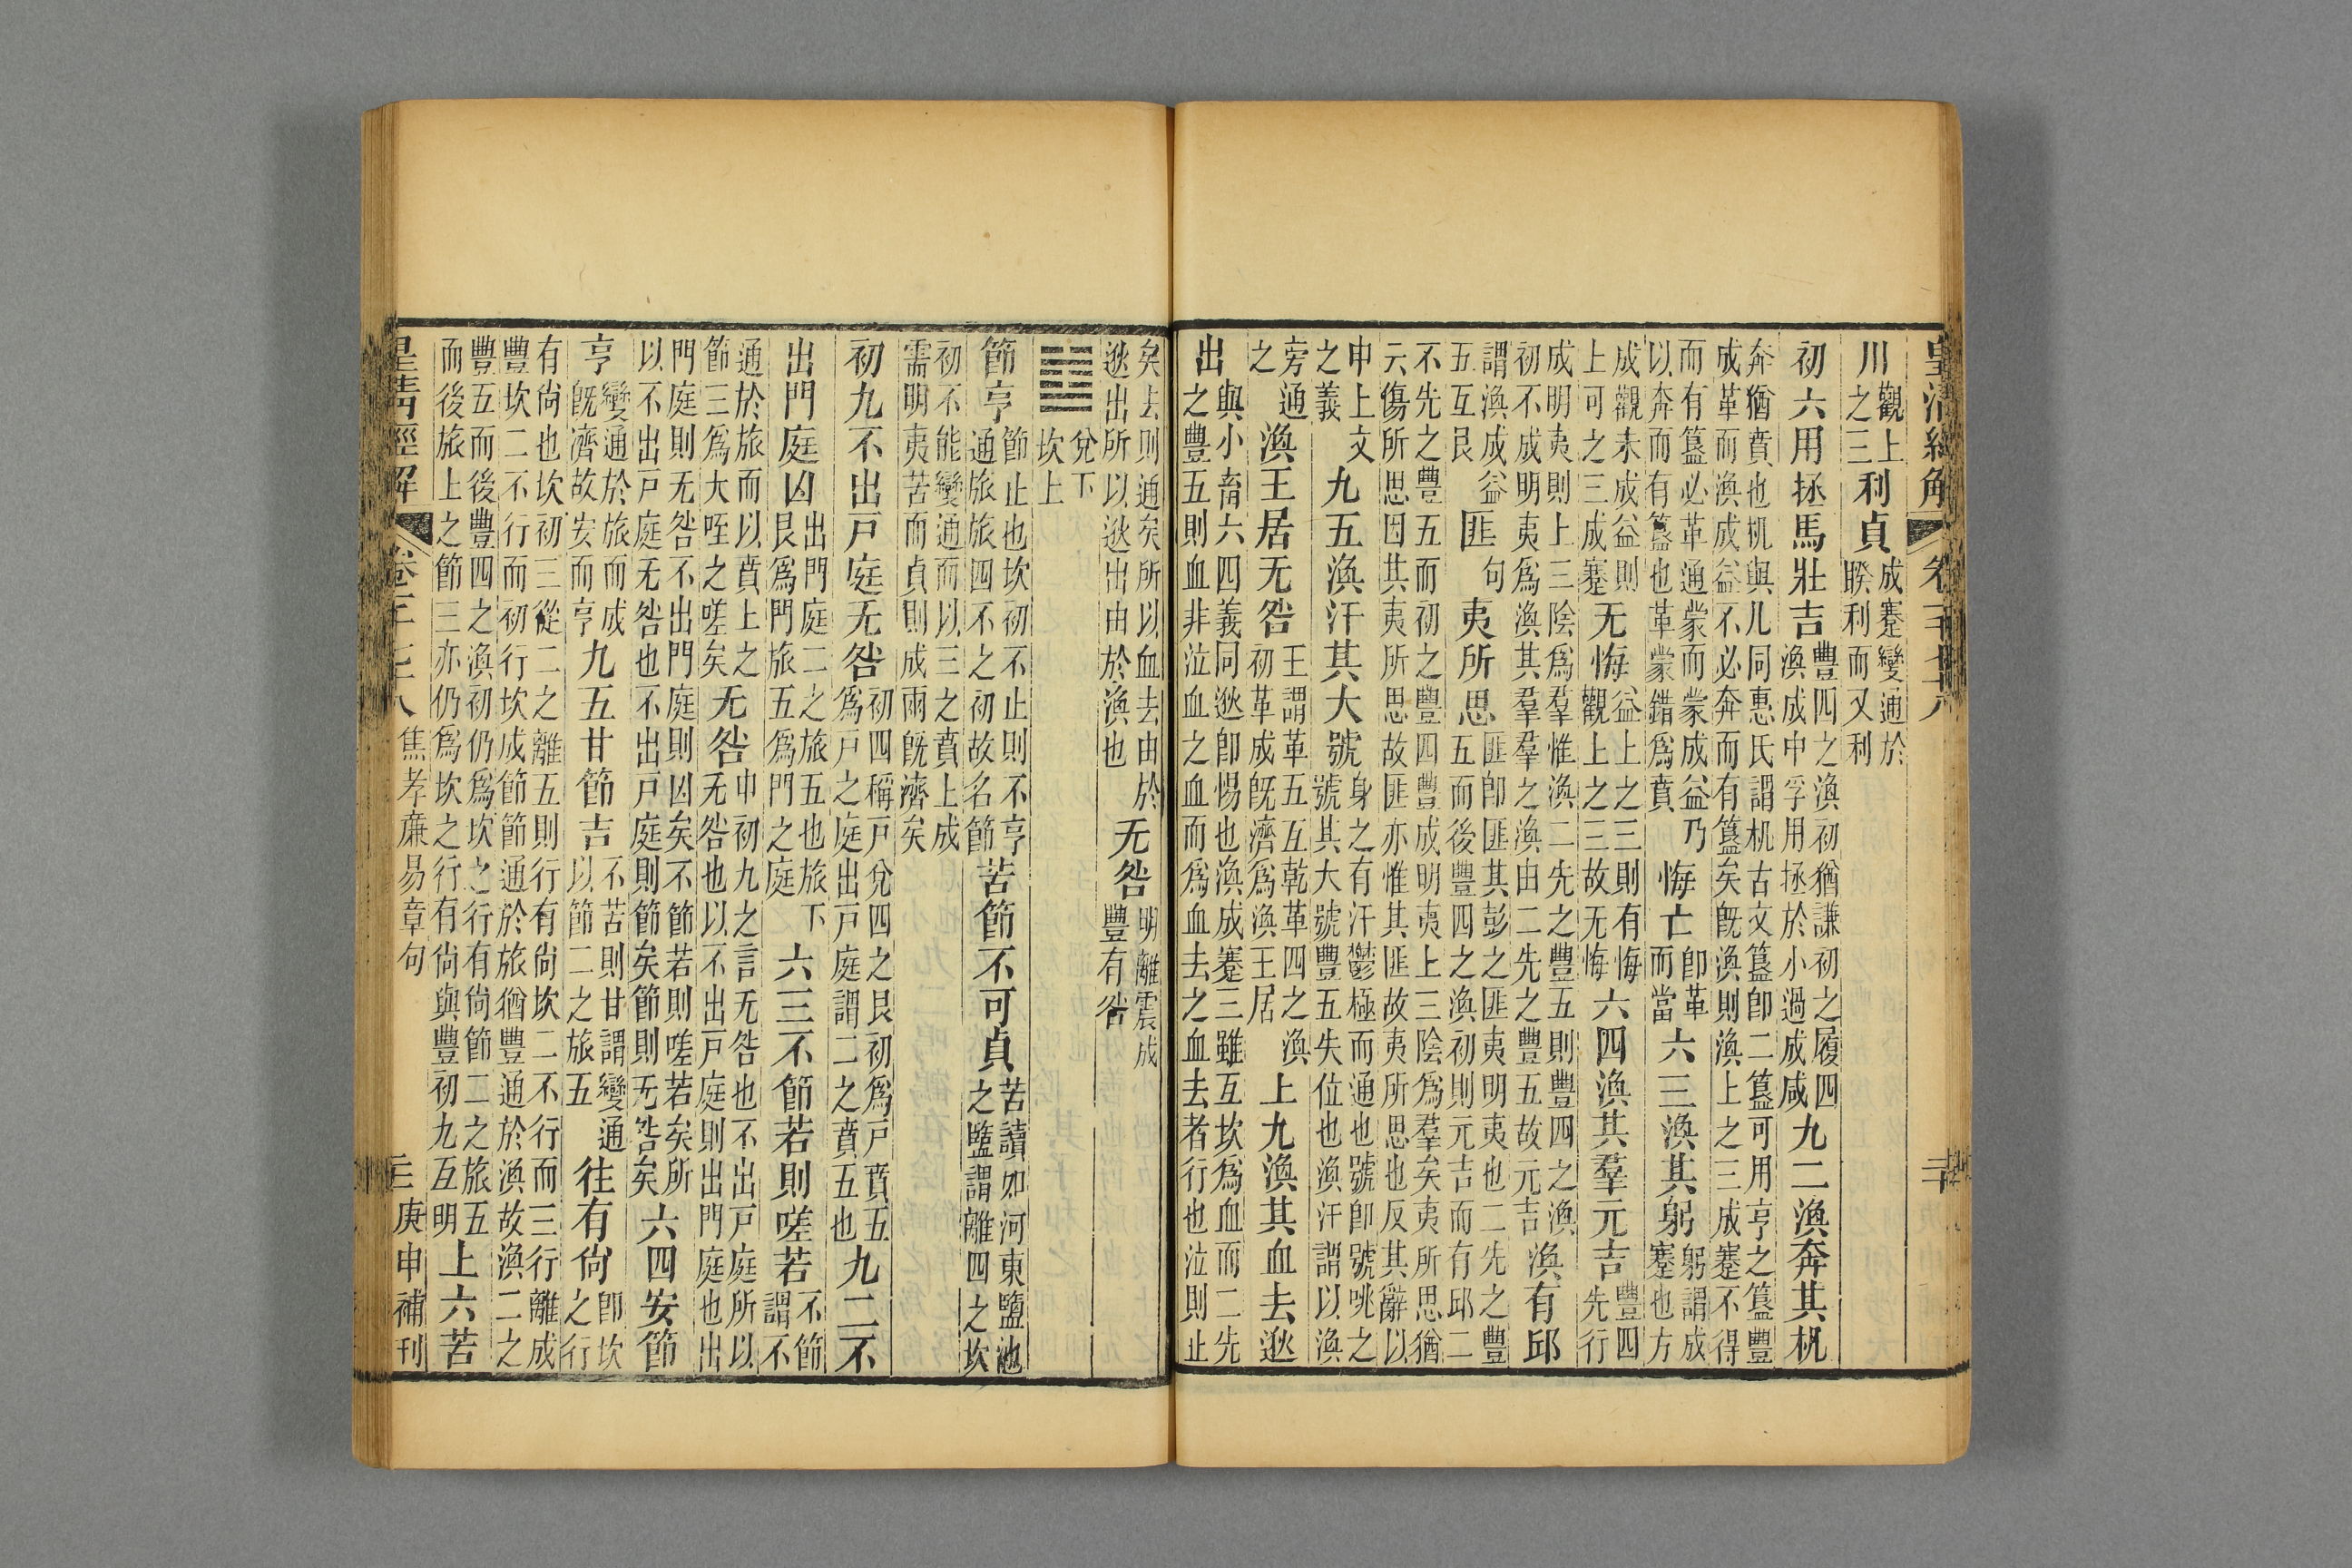 皇清經解 卷一千七十八
川觀上之三利貞成蹇變通於睽利而又利
初六用拯馬壯吉豐四之渙初猶謙初之履四渙成中孚用拯於小過成咸九二渙奔其机
奔猶賁也机與几同惠氏謂机古文簋卽二簋可用亨之簋豐成革而渙成益不必奔而有簋矣旣渙則渙上之三成蹇不得
而有簋必革通蒙而蒙成益乃以奔而有簋也革蒙錯爲賁悔亡卽革而當六三渙其躬躬謂成蹇也方
成觀未成益則上可之三成蹇无悔益上之三則有悔觀上之三故无悔六四渙其羣元吉豐四先行
成明夷則上三陰爲羣惟渙二先之豐五則豐四之渙初不成明夷爲渙其羣羣之渙由二先之豐五故元吉渙有邱
謂渙成益五互艮匪句夷所思匪卽匪其彭之匪夷明夷也二先之豐五而後豐四之渙初則元吉而有邱二
不先之豐五而初之豐四豐成明夷上三陰爲羣矣夷所思猶云傷所思因其夷所思故匪亦惟其匪故夷所思也反其辭以
申上文之義九五渙汗其大號身之有汗鬱極而通也號卽號咷之號其大號豐五失位也渙汗謂以渙
旁通之渙王居无咎王謂革五互乾革四之渙初革成旣濟爲渙王居上九渙其血去逖
出與小畜六四義同逖卽惕也渙成蹇三雖互坎爲血而二先之豐五則血非泣血之血而爲血去之血去者行也泣則止
矣去則通矣所以血去由於逖出所以逖出由於渙也无咎明離震成豐有咎
兌下坎上
節亨節止也坎初不止則不亨通旅旅四不之初故名節苦節不可貞苦讀如河東鹽池之鹽謂離四之坎
初不能變通而以三之賁上成需明夷苦而貞則成兩旣濟矣
初九不出戸庭无咎初四稱戸兌四之艮初爲戸賁五爲戸之庭出戸庭謂二之賁五也九二不
出門庭凶出門庭二之旅五也旅下艮爲門旅五爲門之庭六三不節若則嗟若不節謂不
通於旅而以賁上之節三爲大咥之嗟矣无咎申初九之言无咎也不出戸庭所以无咎也以不出戸庭則出門庭也出
門庭則无咎不出門庭則凶矣不節若則嗟若矣所以不出戸庭无咎也不出戸庭則節矣節則无咎矣六四安節
亨變通於旅而成旣濟故安而亨九五甘節吉不苦則甘謂變通以節二之旅五往有尚卽坎之行
有尚也坎初三從二之離五則行有尚坎二不行而三行離成豐坎二不行而初行坎成節節通於旅猶豐通於渙故渙二之
豐五而後豐四之渙初仍爲坎之行有尚節二之旅五而後旅上之節三亦仍爲坎之行有尚與豐初九互明上六苦
皇清經解 卷一千七十八 焦孝廉易章句 三 庚申補刊